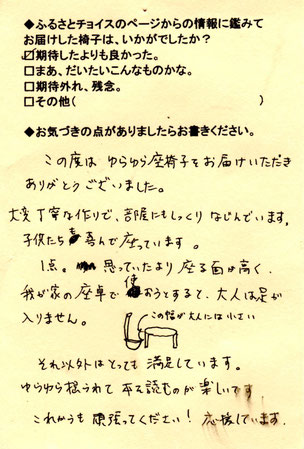 ◆ふるさとチョイスのページからの情報に鑑みて
お届けした椅子は、いかがでしたか？
☑期待したよりも良かった。
□まあ、だいたいこんなものかな。
□期待外れ、残念。
□その他(　　　　　　　　　　　　)
◆お気づきの点がありましたらお書きください。
この度は ゆらゆら座椅子をお届けいただき
ありがとうございました。
大変丁寧な作りで、部屋にもしっくりなじんでいます。
子供たちも喜んで座っています。
1点。思っていたより座る面が高く、
我が家の座卓で使おうとすると、大人は足が
入りません。
この幅が大人には小さい
それ以外はとっても満足しています。
ゆらゆら揺られて本を読むのが楽しいです
これからも頑張ってください！応援しています。